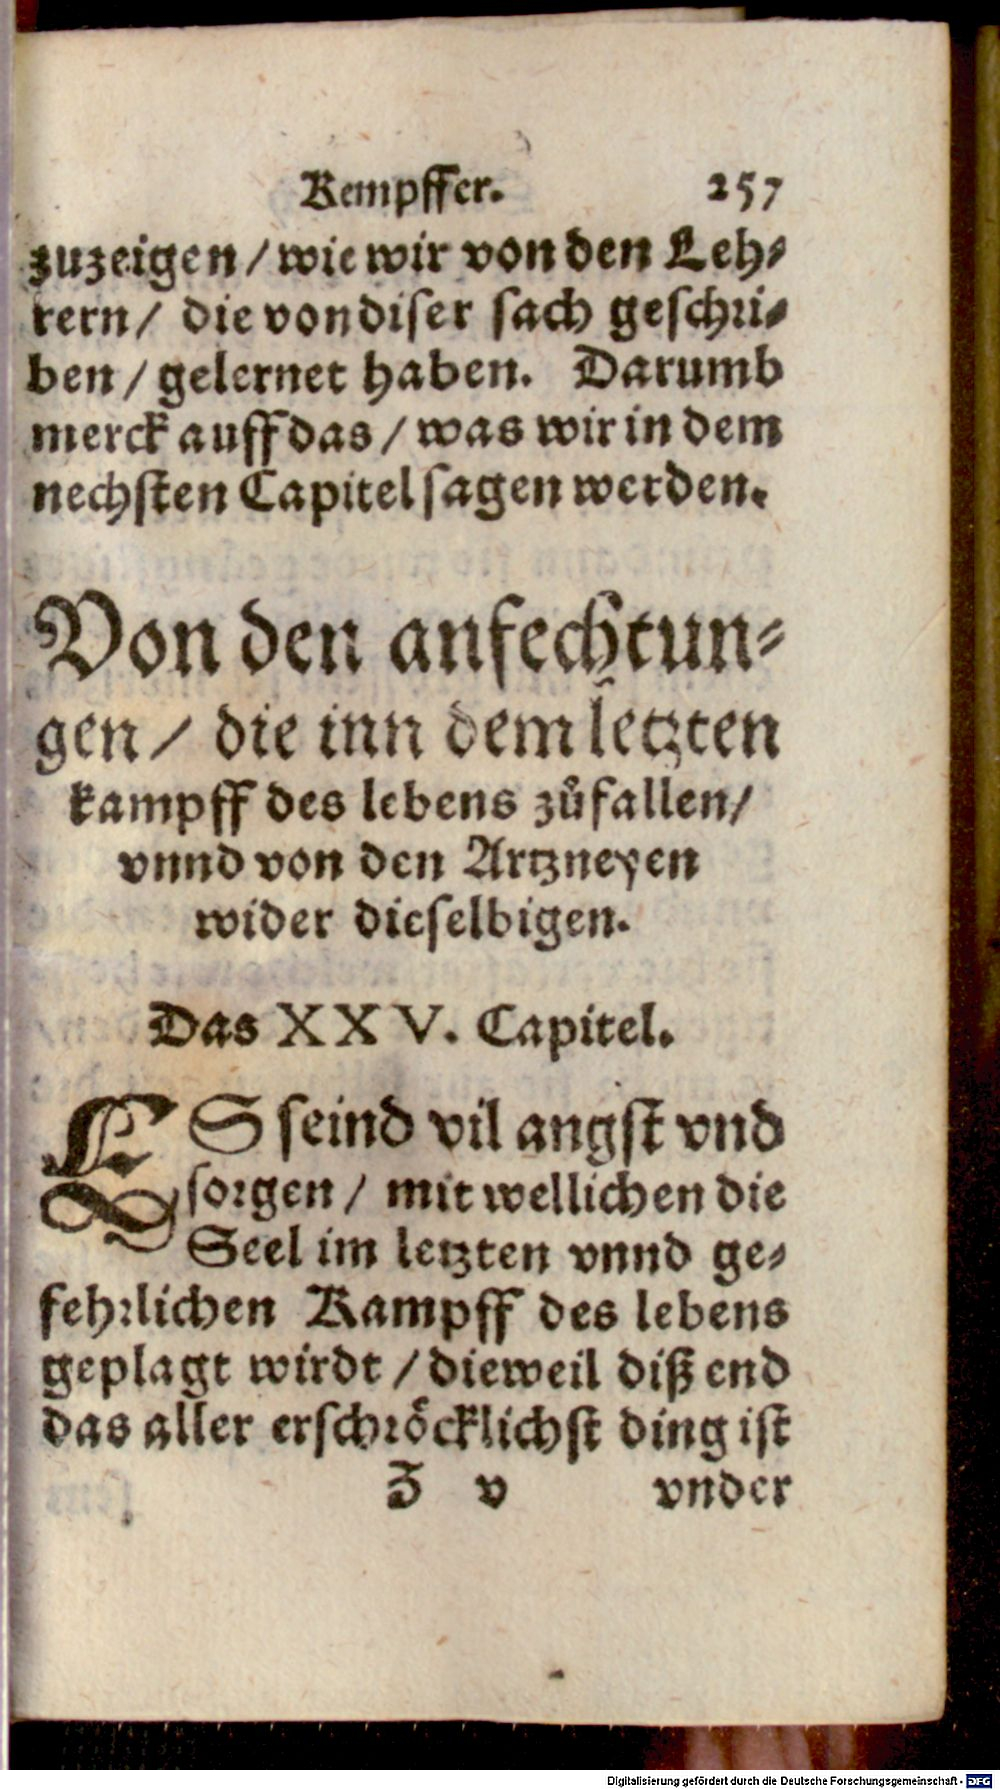 Kempffer. 257
zuzeigen / wie wir von den Leh⸗
rern / die von diser sach geschri⸗
ben / gelernet haben. Darumb
merck auff das / was wir in dem
nechsten Capitel sagen werden.
Von den anfechtun⸗
gen / die inn dem letzten
kampff des lebens zůfallen /
vnnd von den Artzneyen
wider dieselbigen.
Das XXV. Capitel.
ES seind vil angst vnd
sorgen / mit wellichen die
Seel im letzten vnnd ge⸗
fehrlichen Kampff des lebens
geplagt wirdt / dieweil diß end
das aller erschröcklichst ding ist
Z v vnder
Digitalisierung gefördert durch die Deutsche Forschungsgemeinschaft - DFG